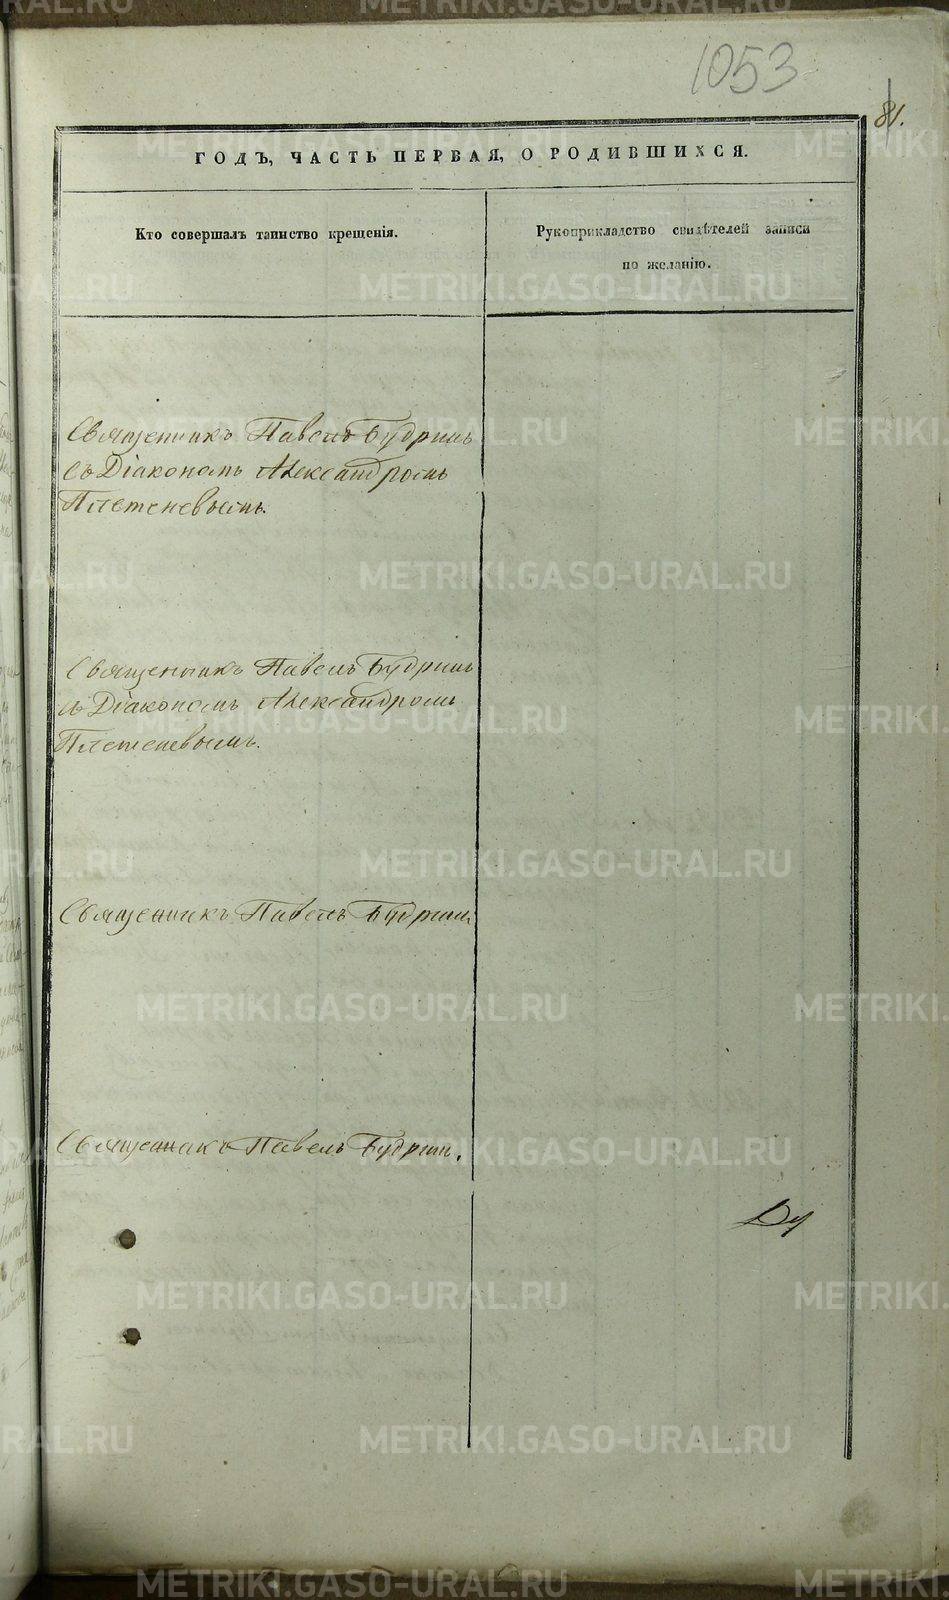 1053
81.
ГОДЪ, ЧАСТЬ ПЕРВАЯ, О РОДИВШИХСЯ.
Кто совершалъ таинство крещенія.
Рукоприкладство свидѣтелей записи
по желанію.
Священникъ Павелъ Будринъ
съ Діакономъ Александромъ
Плетеневымъ.
Священникъ Павелъ Будринъ
съ Діакономъ Александромъ
Плетеневымъ.
Священникъ Павелъ Будринъ
Священникъ Павелъ Будрин.
METRIKI.GASO-URAL.RU